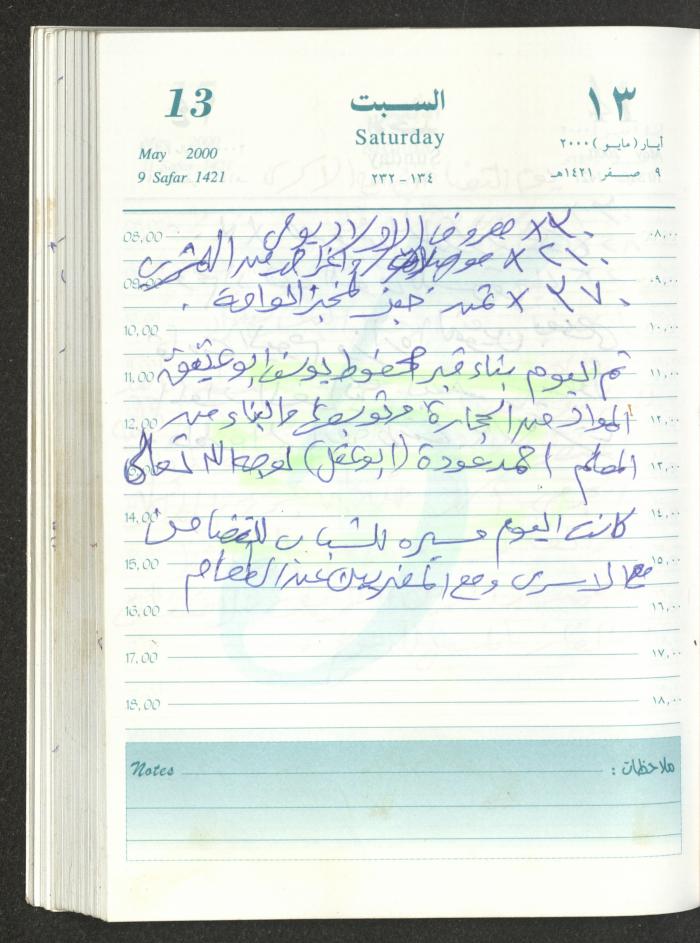 13
السبت
١٣
Saturday
May 2000
أيار (مايو) ٢٠٠٠
9 Safar 1421
١٣٤-٢٣٢
٩ صفر ١٤٢١هـ
08,00 ٣٠ x مصروف الاولاد يومي ٠٨,٠٠
٢١٠ x مواصلات واغراض من
09,00 ٠٩,٠٠
٣٧٠ x ثمن خبز لمخبز الواحة .
10,00 ١٠,٠٠
11,00 تم اليوم بناء قبر محفوظ يوسف ابو عتيقة ١١,٠٠
12,00 المواد من الحجارة وتوابعها والبناء من ١٢,٠٠
13,00 المعلم احمد عودة (ابو عقل) لوجه الله تعالى ١٣,٠٠
14,00 كانت اليوم مسيره للشباب للتضامن ١٤,٠٠
15,00 مع الاسرى ومع المضربين عن الطعام ١٥,٠٠
16,00 ١٦,٠٠
17,00 ١٧,٠٠
18,00 ١٨,٠٠
Notes ملاحظات :